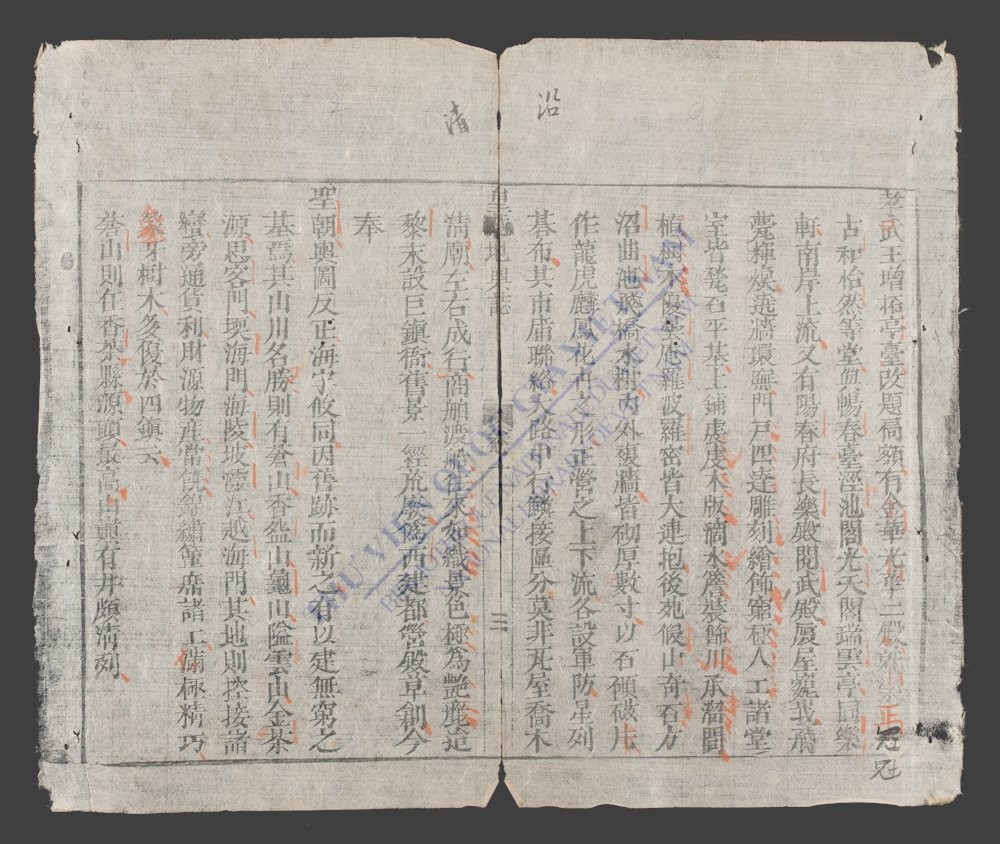 沿
渚
孝武王增拓亭臺改題扁額有金華光華二殿
古和怡然等堂與暢春臺瑤池閣光天閣瑞雲亭同樂
軒南岸上流又有陽春府長樂殿閱武殿廈屋巍峩飛
甍輝煥選牆環廡門戸四達雕刻繪飾窮極人工諸堂
室皆甃石平基上鋪虔虔木版滴水簷裝飾川承牆間
植樹木陽雲㢚羅波羅密皆大連抱後苑假山奇石方
沼曲池飛橋水榭內外複牆皆砌厚數寸以石碩磁片
作龍虎麟鳳花卉之形正營之上下流各設軍防星列
碁布其市庸聯絡大路中行鱗接區分莫非瓦屋喬木
皇 地輿誌
三
清廟左右成行商舶渡艘往來如織景色極為艷麗迨
黎末設巨鎮衙舊景一經荒廢偽西建都營殿草創今
奉
聖朝輿圖反正海宇攸同因舊跡而新之有以建無窮之
基焉其山川名勝則有礬山香盆山龜山隘雲山金茶
源思客門㙁海門海陵坡靈江越海門其地則控接諸
蠻旁通貨利財源物産常饒錦繡簟席諸工滿極精巧
象牙樹木多優於四鎮云
礬山則在香茶縣源頭最高山巔有井頗清冽
正
冠